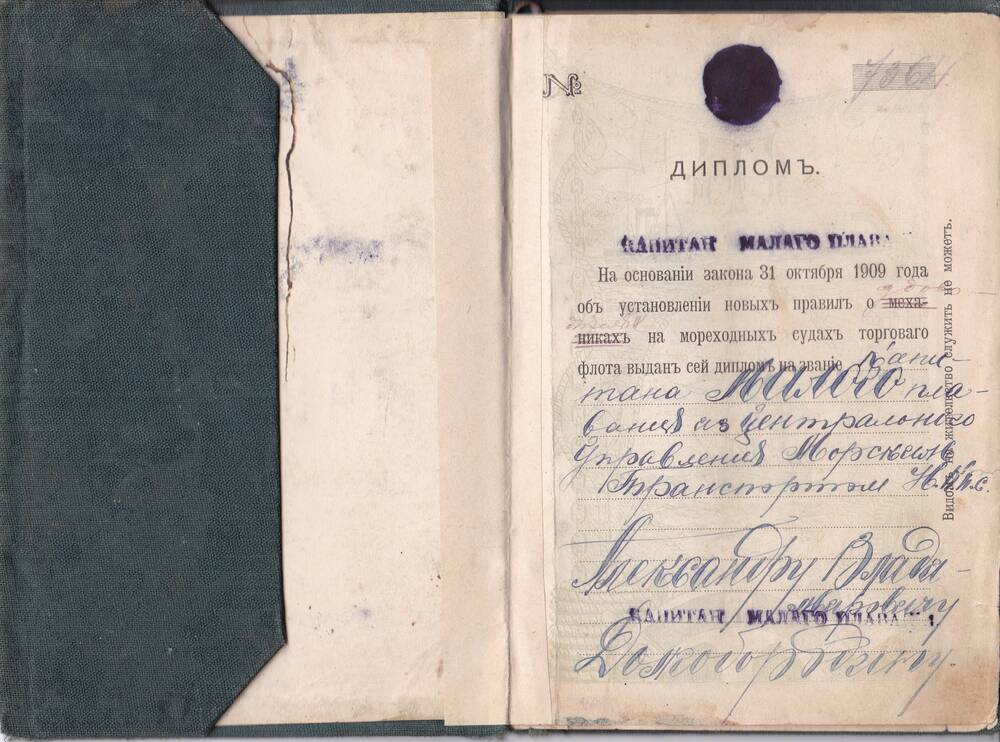 № 7064
ДИПЛОМЪ.
КАПИТАН МАЛАГО ПЛАВА
На основаніи закона 31 октября 1909 года
объ установленіи новыхъ правилъ о меха-
никахъ на мореходныхъ судахъ торговаго
флота выданъ сей дипломъ на званіе Капи-
тана Малого пла-
вания из Центрального
Управления Морским
Транспортом Н.К.П.С.
Александру Влади-
мировичу
КАПИТАН МАЛАГО ПЛАВА
Домобородкину.
Видомъ на жительство служить не можетъ.